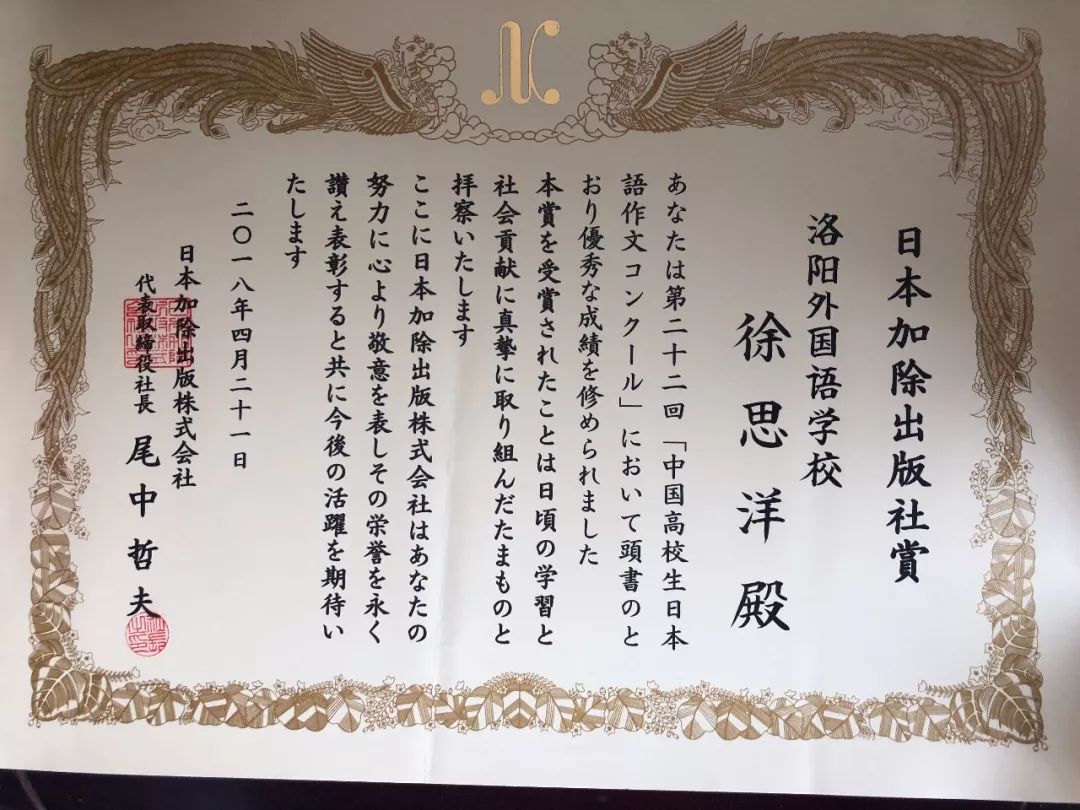 日本加除出版社賞
洛阳外国语学校
徐思洋殿
あなたは第二十二回「中国高校生日本
語作文コンクール」において頭書のと
おり優秀な成績を修められました
本賞を受賞されたことは日頃の学習と
社会貢献に真摯に取り組んだたまものと
拝察いたします
ここに日本加除出版株式会社はあなたの
努力に心より敬意を表しその栄誉を永く
讃え表彰すると共に今後の活躍を期待い
たします
二〇一八年四月二十一日
日本加除出版株式会社
代表取締役社長 尾中哲夫